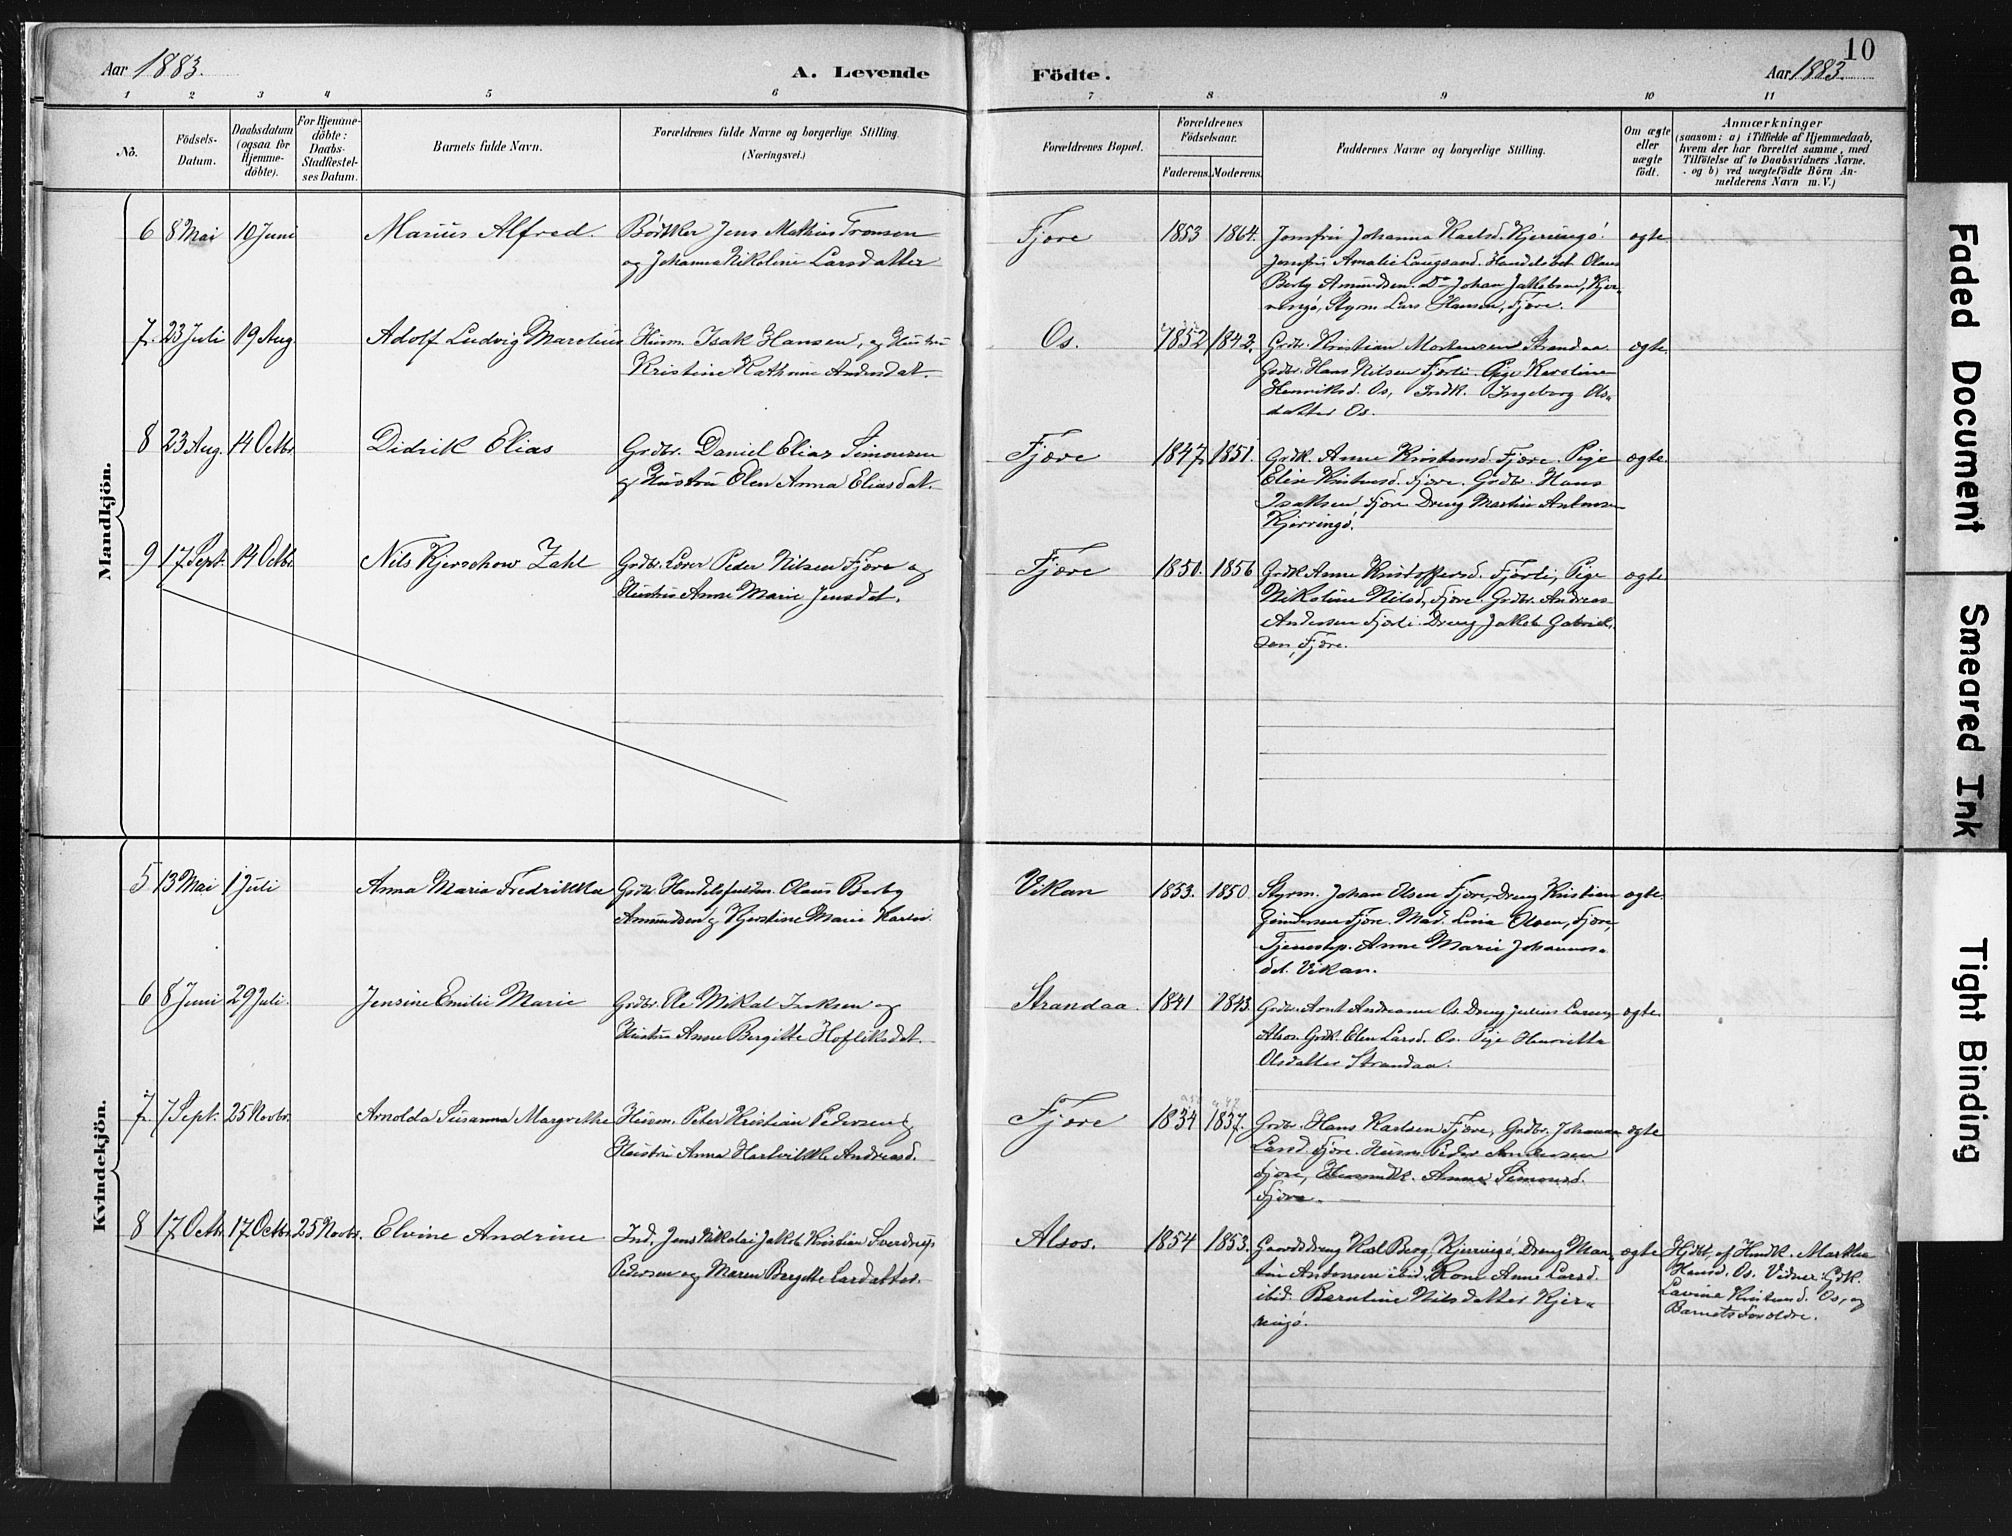 Aar 1883.
A. Levende
Födte.
10
Aar 1883
1 2 3 4 5 6 7 8 9 10 11
No.
Födsels-
Datum.
Daabsdatum
(ogsaa for
Hjemme-
döbte).
For Hjemme-
döbte:
Daabs-
Stadfestel-
ses Datum.
Barnets fulde Navn.
Forældrenes fulde Navne og borgerlige Stilling.
(Næringsvei.)
Forældrenes Bopæl.
Forældrenes
Födselsaar.
Faderens. Moderens.
Faddernes Navne og borgerlige Stilling.
Om ægte
eller
uægte
født.
Anmærkninger
(saasom: a) i Tilfælde af Hjemmedaab,
hvem der har forrettet samme, med
Tilföielse af to Daabsvidners Navne.
og b) ved uægtefödte Börn An-
melderens Navn m. V.)
Mandkjön.
6 8 Mai 10 Juni Marius Alfred. Bödkker Jens Mathias Tronsen
og Johanna Nikoline Larsdatter
Fjære 1853 1864. Jomfru Johanna Karlsd. Kjerringö. ægte
Jomfru Amalie Laugsand. Handelsbet. Olaus
Berby Amundsen. Do Johan Jakobsen, Kjer-
ringö, Styrm. Lars Hansen, Fjære.
7. 23 Juli 19 Aug Adolf Ludvig Marelius Husm. Isak Hansen, og Hustru
Kristine Kathrine Andersdat.
Os. 1852 1842. Grdbr. Kristian Mortensen Strandaa ægte.
Grdbr. Hans Nilsen Fjorli. Pige Karoline
Henriksd. Os, Indk. Ingeborg Ols-
datter Os.
8 23 Aug. 14 Octbr. Didrik Elias Grdbr. Daniel Elias Simonsen
og Hustru Elen Anna Eliasdat.
Fjære 1847 1851. Grdk. Anne Kristensd. Fjære. Pige ægte.
Elise Kristensd. Fjære. Grdbr. Hans
Isaksen Fjære Dreng Martin Antonsen
Kjerringö.
9 17 Sept. 14 Octbr. Nils Kjerschow Zahl Grdbr. Lærer Peder Nilsen Fjære og
Hustru Anne Marie Jensdat.
Fjære 1850. 1856 Grdk Anne Kristoffersd. Fjorli, Pige ægte
Nikoline Nilsd, Fjære. Grdbr. Andreas
Andersen Fjorli Dreng Jakob Gabriel-
sen, Fjære.
Kvindekjön.
5 13 Mai 1 Juli Anna Maria Fredrikka Grdbr. Handelsfuldm. Olaus Berby
Amundsen og Kjerstine Marie Karlsd.
Vikan 1853. 1850. Styrm. Johan Olsen Fjære, Dreng Kristian ægte.
Gundersen Fjære. Mad. Lina Olsen, Fjære,
Tjenestep. Anne Marie Johannes-
dat. Vikan.
6 8 Juni 29 Juli. Jensine Emilie Marie Grdbr. Ole Mikal Isaksen og
Hustru Anne Bergitte Hofliksdat.
Strandaa. 1841 1843. Grdbr. Arnt Andreasen Os. Dreng Julius Larsen ægte.
Alsos. Grdk. Elen Larsd. Os. Pige Henrietta
Olsdatter Strandaa.
7. 7 Sept. 25 Novbr. Arnolda Susanna Margrethe Husm. Peter Kristian Pedersen og
Hustru Anna Hartvikke Andreasd.
Fjære 1834 1837. Grdbr. Hans Karlsen Fjære, Grdbr. Johannes ægte
Larsd. Fjære. Husm. Peder Andersen
Fjære, Husmdk. Anne Simonsd.
Fjære.
8 17 Octbr. 17 Octbr. 25 Novbr. Elvine Andrine Ind. Jens Nikolai Jakob Kristian Sverdrup
Pedersen og Maren Bergitte Larsdatter.
Alsos. 1854 1853. Gaardsdreng Karl Berg, Kjerringö, Dreng Mar- ægte
tin Antonsen ibid. Kone Anne Larsd.
ibid. Berntine Nilsdatter Kjer-
ringö.
Hjdbt. af Hmdk. Martha
Hansd. Os. Vidner: Gdk.
Lavina Kristensd. Os, og
Barnets Forældre.
Faded Document
Smeared Ink
Tight Binding